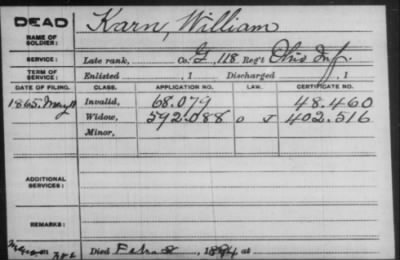 DEAD
NAME OF SOLDIER: Karn, William
SERVICE: Late rank, Co. G, 118 Reg't Ohio Inf.
TERM OF SERVICE: Enlisted , 1 Discharged , 1
DATE OF FILING. CLASS. APPLICATION NO. LAW. CERTIFICATE NO.
1865. May Invalid, 68.079 48.460
Widow, 592.088 402.516
Minor,
ADDITIONAL SERVICES:
REMARKS:
Died Feb. 8 , 18 at